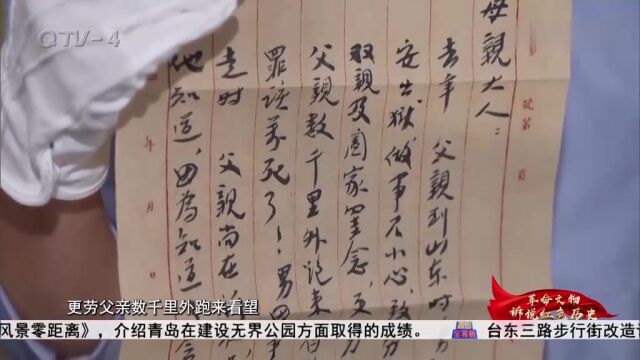 QTV-4
號第 頁
母親大人：
去年 父親到山东时
安出獄，做事不小心，致
双親及闔家罣念，更
父親数千里外跑来
罪該萬死了！男
走时 父親尚在
他知道，因為知道
年 月 日
更劳父亲数千里外跑来看望
革命文物
诉说红色历史
风景零距离》，介绍青岛在建设无界公园方面取得的成绩。 台东三路步行街改造